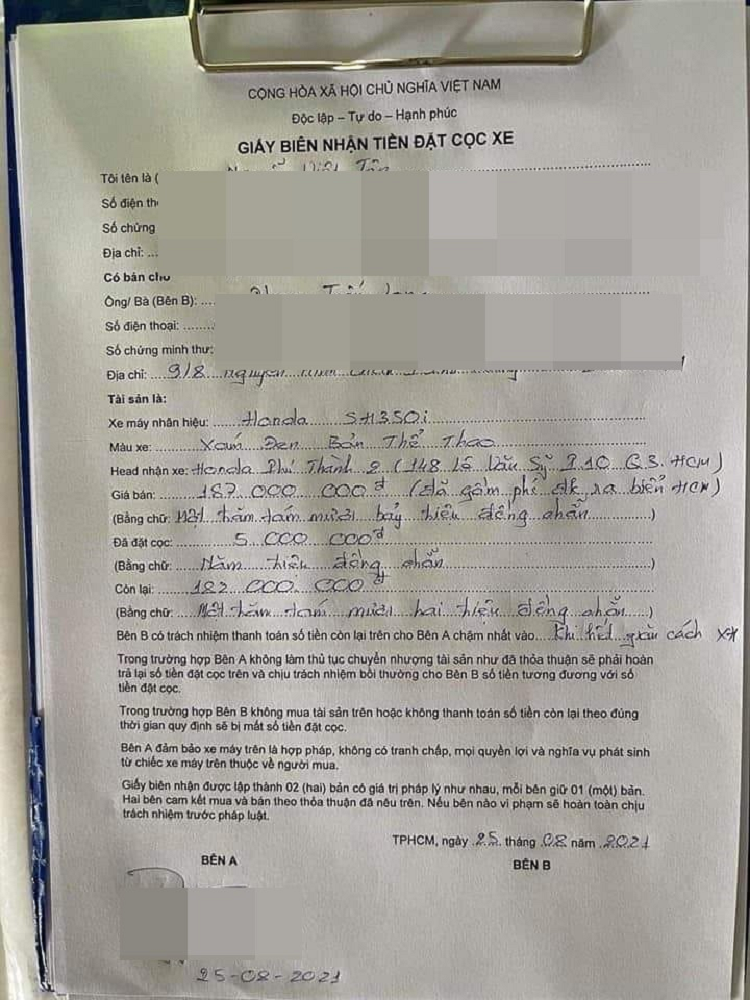 CỘNG HÒA XÃ HỘI CHỦ NGHĨA VIỆT NAM
Độc lập – Tự do – Hạnh phúc
GIẤY BIÊN NHẬN TIỀN ĐẶT CỌC XE
Tôi tên là (
Số điện th
Số chứng
Địa chỉ: ...
Có bán cho
Ông/ Bà (Bên B): ....
Số điện thoại: ........
Số chứng minh thư:
Địa chỉ: ....918
Tài sản là:
Xe máy nhãn hiệu: Honda SH350i
Màu xe: Xám Đen Bản Thể Thao
Head nhận xe: Honda Phú Thành 2 (148 Lê Văn Sỹ P.10 Q3. HCM)
Giá bán: 187 000 000đ (đã gồm phí đk ra biển HCM)
(Bằng chữ: Một trăm tám mươi bảy triệu đồng chẵn)
Đã đặt cọc: 5 000 000đ
(Bằng chữ: Năm triệu đồng chẵn)
Còn lại: 182 000 000đ
(Bằng chữ: Một trăm tám mươi hai triệu đồng chẵn)
Bên B có trách nhiệm thanh toán số tiền còn lại trên cho Bên A chậm nhất vào.... Khi hết giãn cách XH
Trong trường hợp Bên A không làm thủ tục chuyển nhượng tài sản như đã thỏa thuận sẽ phải hoàn
trả lại số tiền đặt cọc trên và chịu trách nhiệm bồi thường cho Bên B số tiền tương đương với số
tiền đặt cọc.
Trong trường hợp Bên B không mua tài sản trên hoặc không thanh toán số tiền còn lại theo đúng
thời gian quy định sẽ bị mất số tiền đặt cọc.
Bên A đảm bảo xe máy trên là hợp pháp, không có tranh chấp, mọi quyền lợi và nghĩa vụ phát sinh
từ chiếc xe máy trên thuộc về người mua.
Giấy biên nhận được lập thành 02 (hai) bản có giá trị pháp lý như nhau, mỗi bên giữ 01 (một) bản.
Hai bên cam kết mua và bán theo thỏa thuận đã nêu trên. Nếu bên nào vi phạm sẽ hoàn toàn chịu
trách nhiệm trước pháp luật.
TPHCM, ngày 25 tháng 08 năm 2021
BÊN A BÊN B
25-08-2021